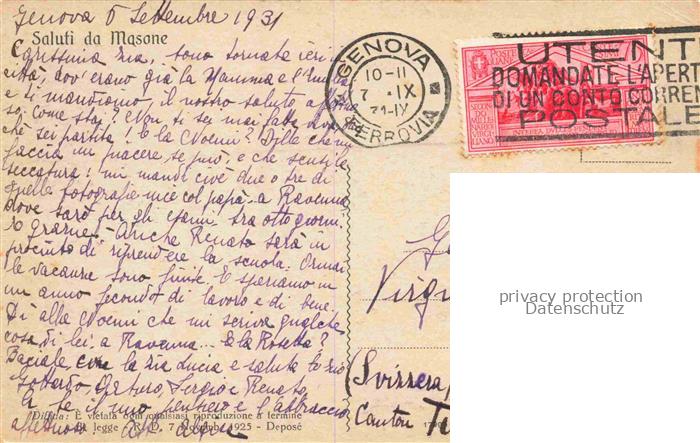 Genova 6 Settembre 1931
Saluti da Masone
Carissima Zia, sono tornata ieri in
città, dov'erano già la Mamma e l'
e ti mandiamo il nostro saluto
so: Come stai? Non ti sei mai fatta viva
chè sei partita! E la Noemi? Dille che mi
faccia un piacere, se può, e che senta la
seccatura: mi mandi cioè due o tre di
quelle fotografie mie col papà a Ravenna
dove sarò per gli esami, tra otto giorni.
Anche Renato sarà in
procinto di riprendere la scuola: Ormai
le vacanze sono finite. E speriamo in
un anno fecondo di lavoro e di bene.
Di' alla Noemi che mi scriva qualche
cosa di lei a Ravenna... E la Rosetta?
Baciale, con la zia Lucia e saluta lo zio
Gottardo, Arturo, Sergio e Renato.
A te il mio pensiero e l'abbraccio
affettuoso.
Diffida: È vietata ogni qualsiasi riproduzione a termine
di legge - R. D. 7 Novembre 1925 - Deposé
GENOVA
10-11
7 . IX
31-IX
FERROVIA
UTENTI
DOMANDATE L'APERT
DI UN CONTO CORREN
POSTALE
POSTE
ITALIANE
Virgi
(Svizzera)
Canton Te
privacy protection
Datenschutz